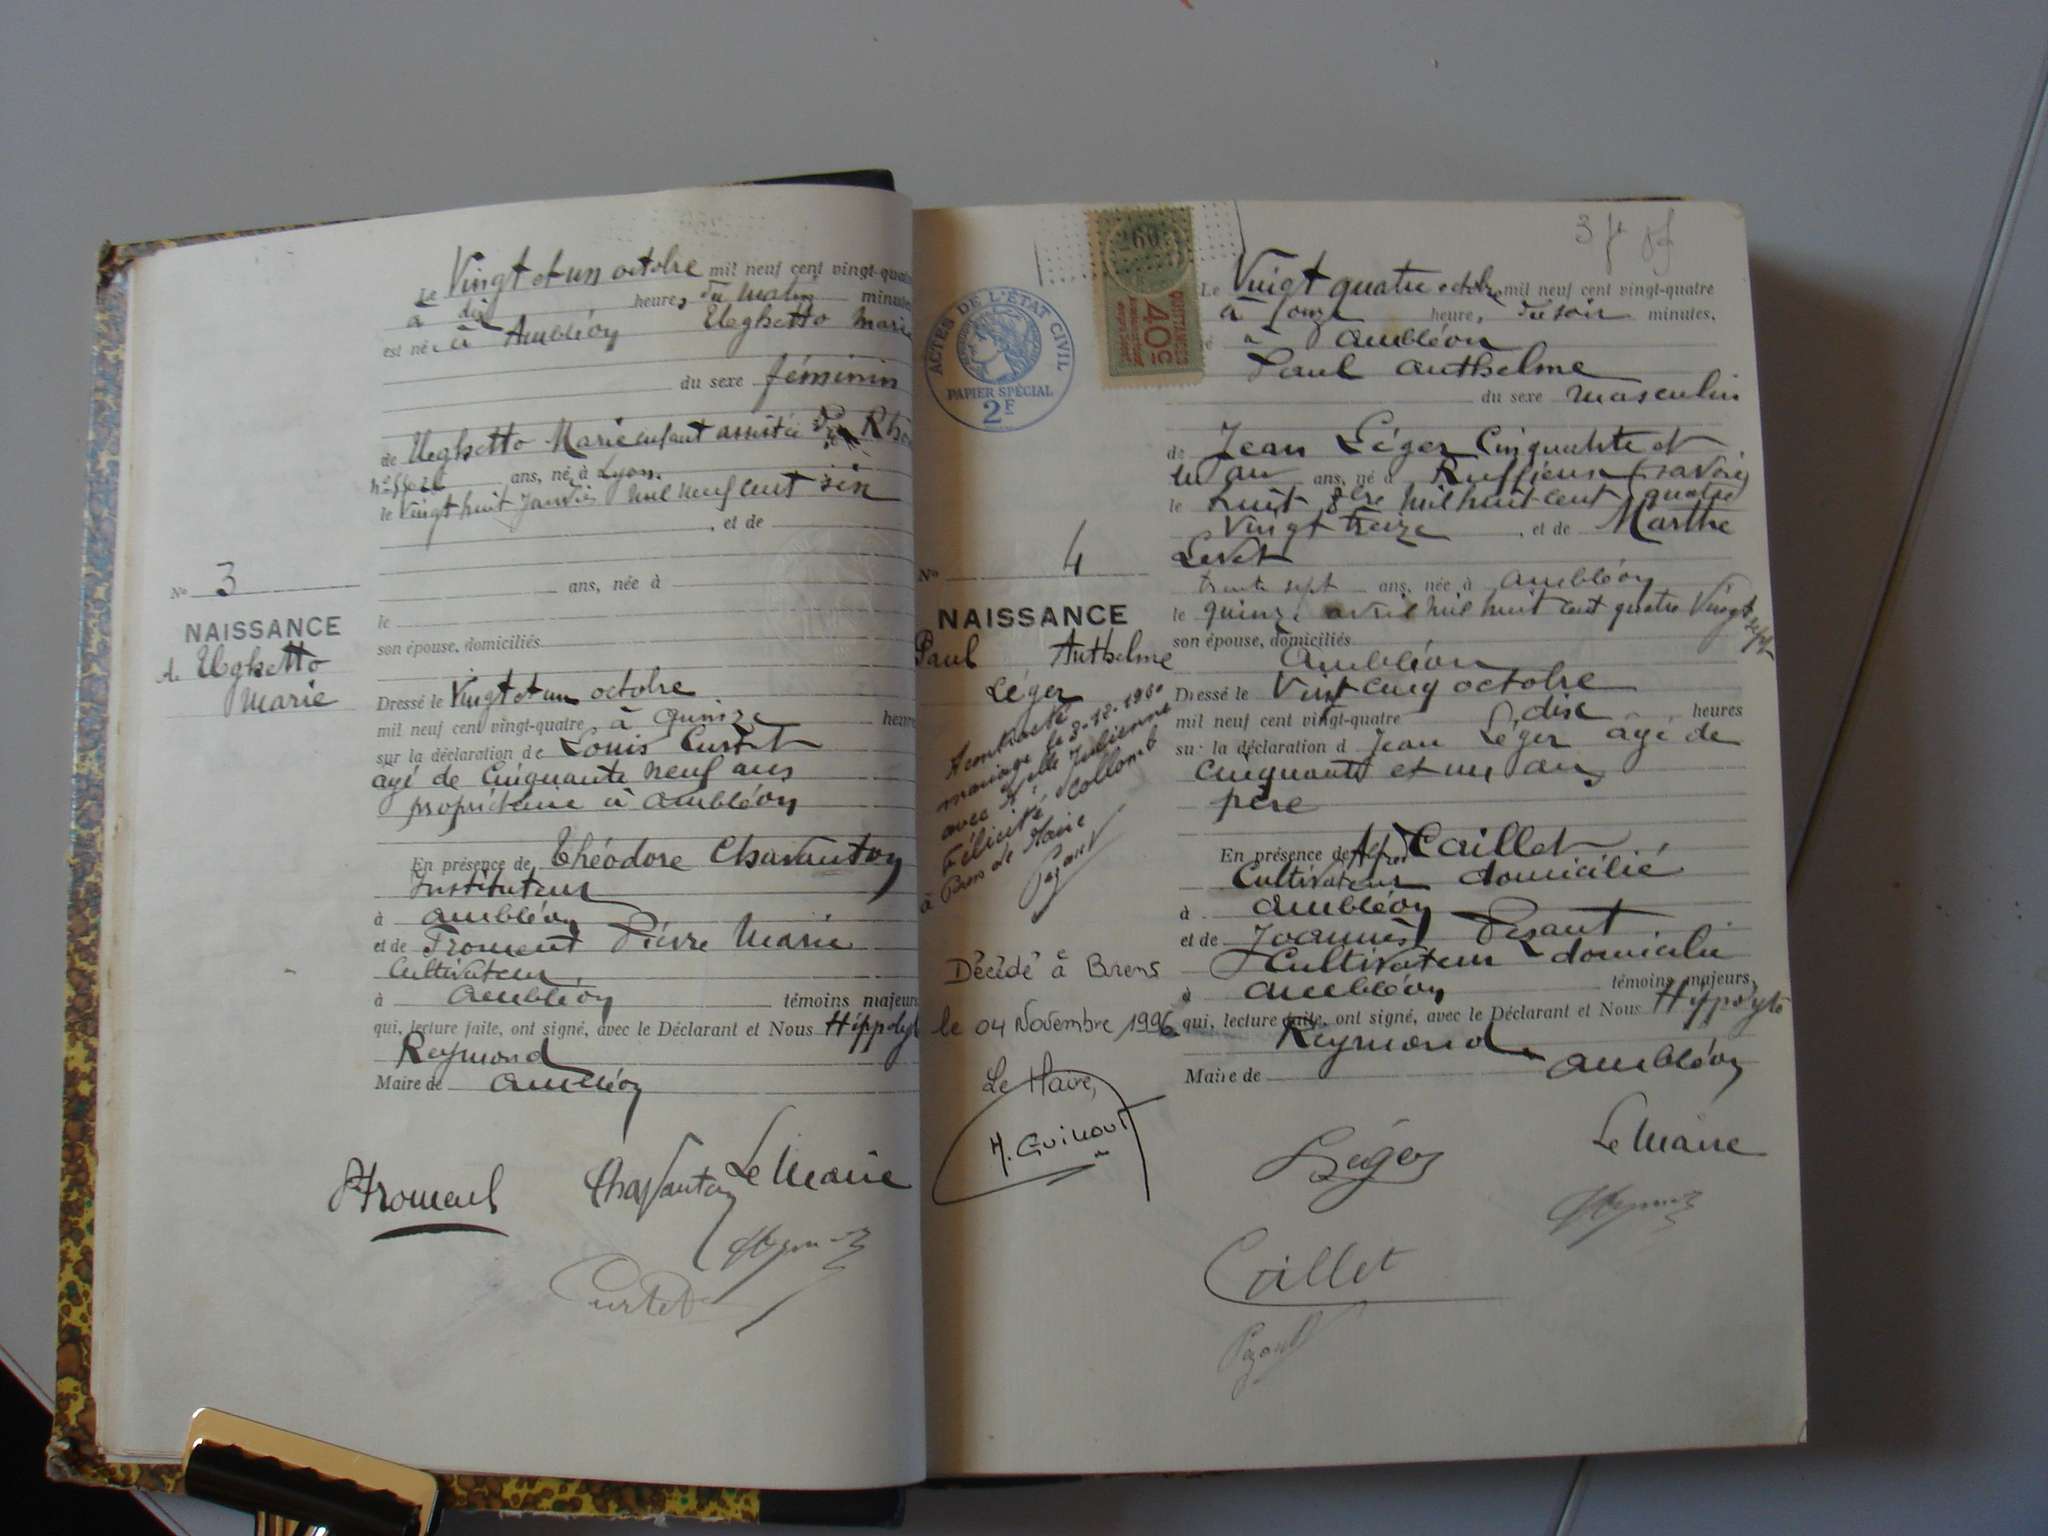 Le Vingt et un octobre mil neuf cent vingt-quatre
à dix heures du matin minutes
est né à Ambléon Ueghetto Marie
du sexe féminin
de Ueghetto Marie enfant assistée du
ans, né à Lyon
le Vingt huit Janvier mil neuf cent six
, et de
ans, née à
le
son épouse, domiciliés
No 3
NAISSANCE
de Ueghetto
Marie
Dressé le Vingt et un octobre
mil neuf cent vingt-quatre à quinze heures
sur la déclaration de Louis Curtet
agé de Cinquante neuf ans
propriétaire à Ambléon
En présence de Théodore Chavanton
Instituteur
à Ambléon
et de Froment Pierre Marie
Cultivateur
à Ambléon témoins majeurs
qui, lecture faite, ont signé, avec le Déclarant et Nous Hippolyte
Reymond
Maire de Ambléon
Froment
Chavanton
Le Maire
Curtet
3
ACTES DE L'ÉTAT CIVIL
PAPIER SPÉCIAL
2F
260
QUITTANCES
40c
No 4
NAISSANCE
Paul Anthelme
Léger
A contracté
mariage le 3-12-1960
avec Melle Julienne
Félicité Collomb
à Brens le Maire
Pezant
Décédé à Brens
le 04 Novembre 1996
Le Maire,
M. Guinout
Le Vingt quatre octobre mil neuf cent vingt-quatre
à onze heure, du soir minutes,
é à Ambléon
Paul Anthelme
du sexe masculin
de Jean Léger Cinquante et
un an ans, né à Ruffieux (Savoie)
le huit 8bre mil huit cent quatre
Vingt treize , et de Marthe
Levet
trente sept ans, née à Ambléon
le quinze avril mil huit cent quatre Vingt sept
son épouse, domiciliés
Ambléon
Dressé le Vingt cinq octobre
mil neuf cent vingt-quatre dix heures
sur la déclaration d Jean Léger agé de
Cinquante et un ans
père
En présence de Alfred Caillet
Cultivateur domicilié
à Ambléon
et de Joannès Pezant
Cultivateur domicilié
à Ambléon témoins majeurs,
qui, lecture faite, ont signé, avec le Déclarant et Nous Hippolyte
Reymond
Maire de Ambléon
Léger
Le Maire
Caillet
Pezant